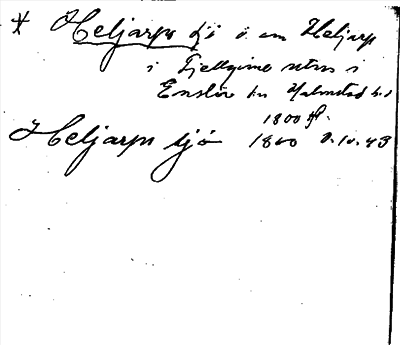 * Heljarps sjö ö om Heljarp
i Fjellgime utm i
Enslöv sn Halmstad h.d
1800 tl.
Heljarps sjö 1860 8.10.43